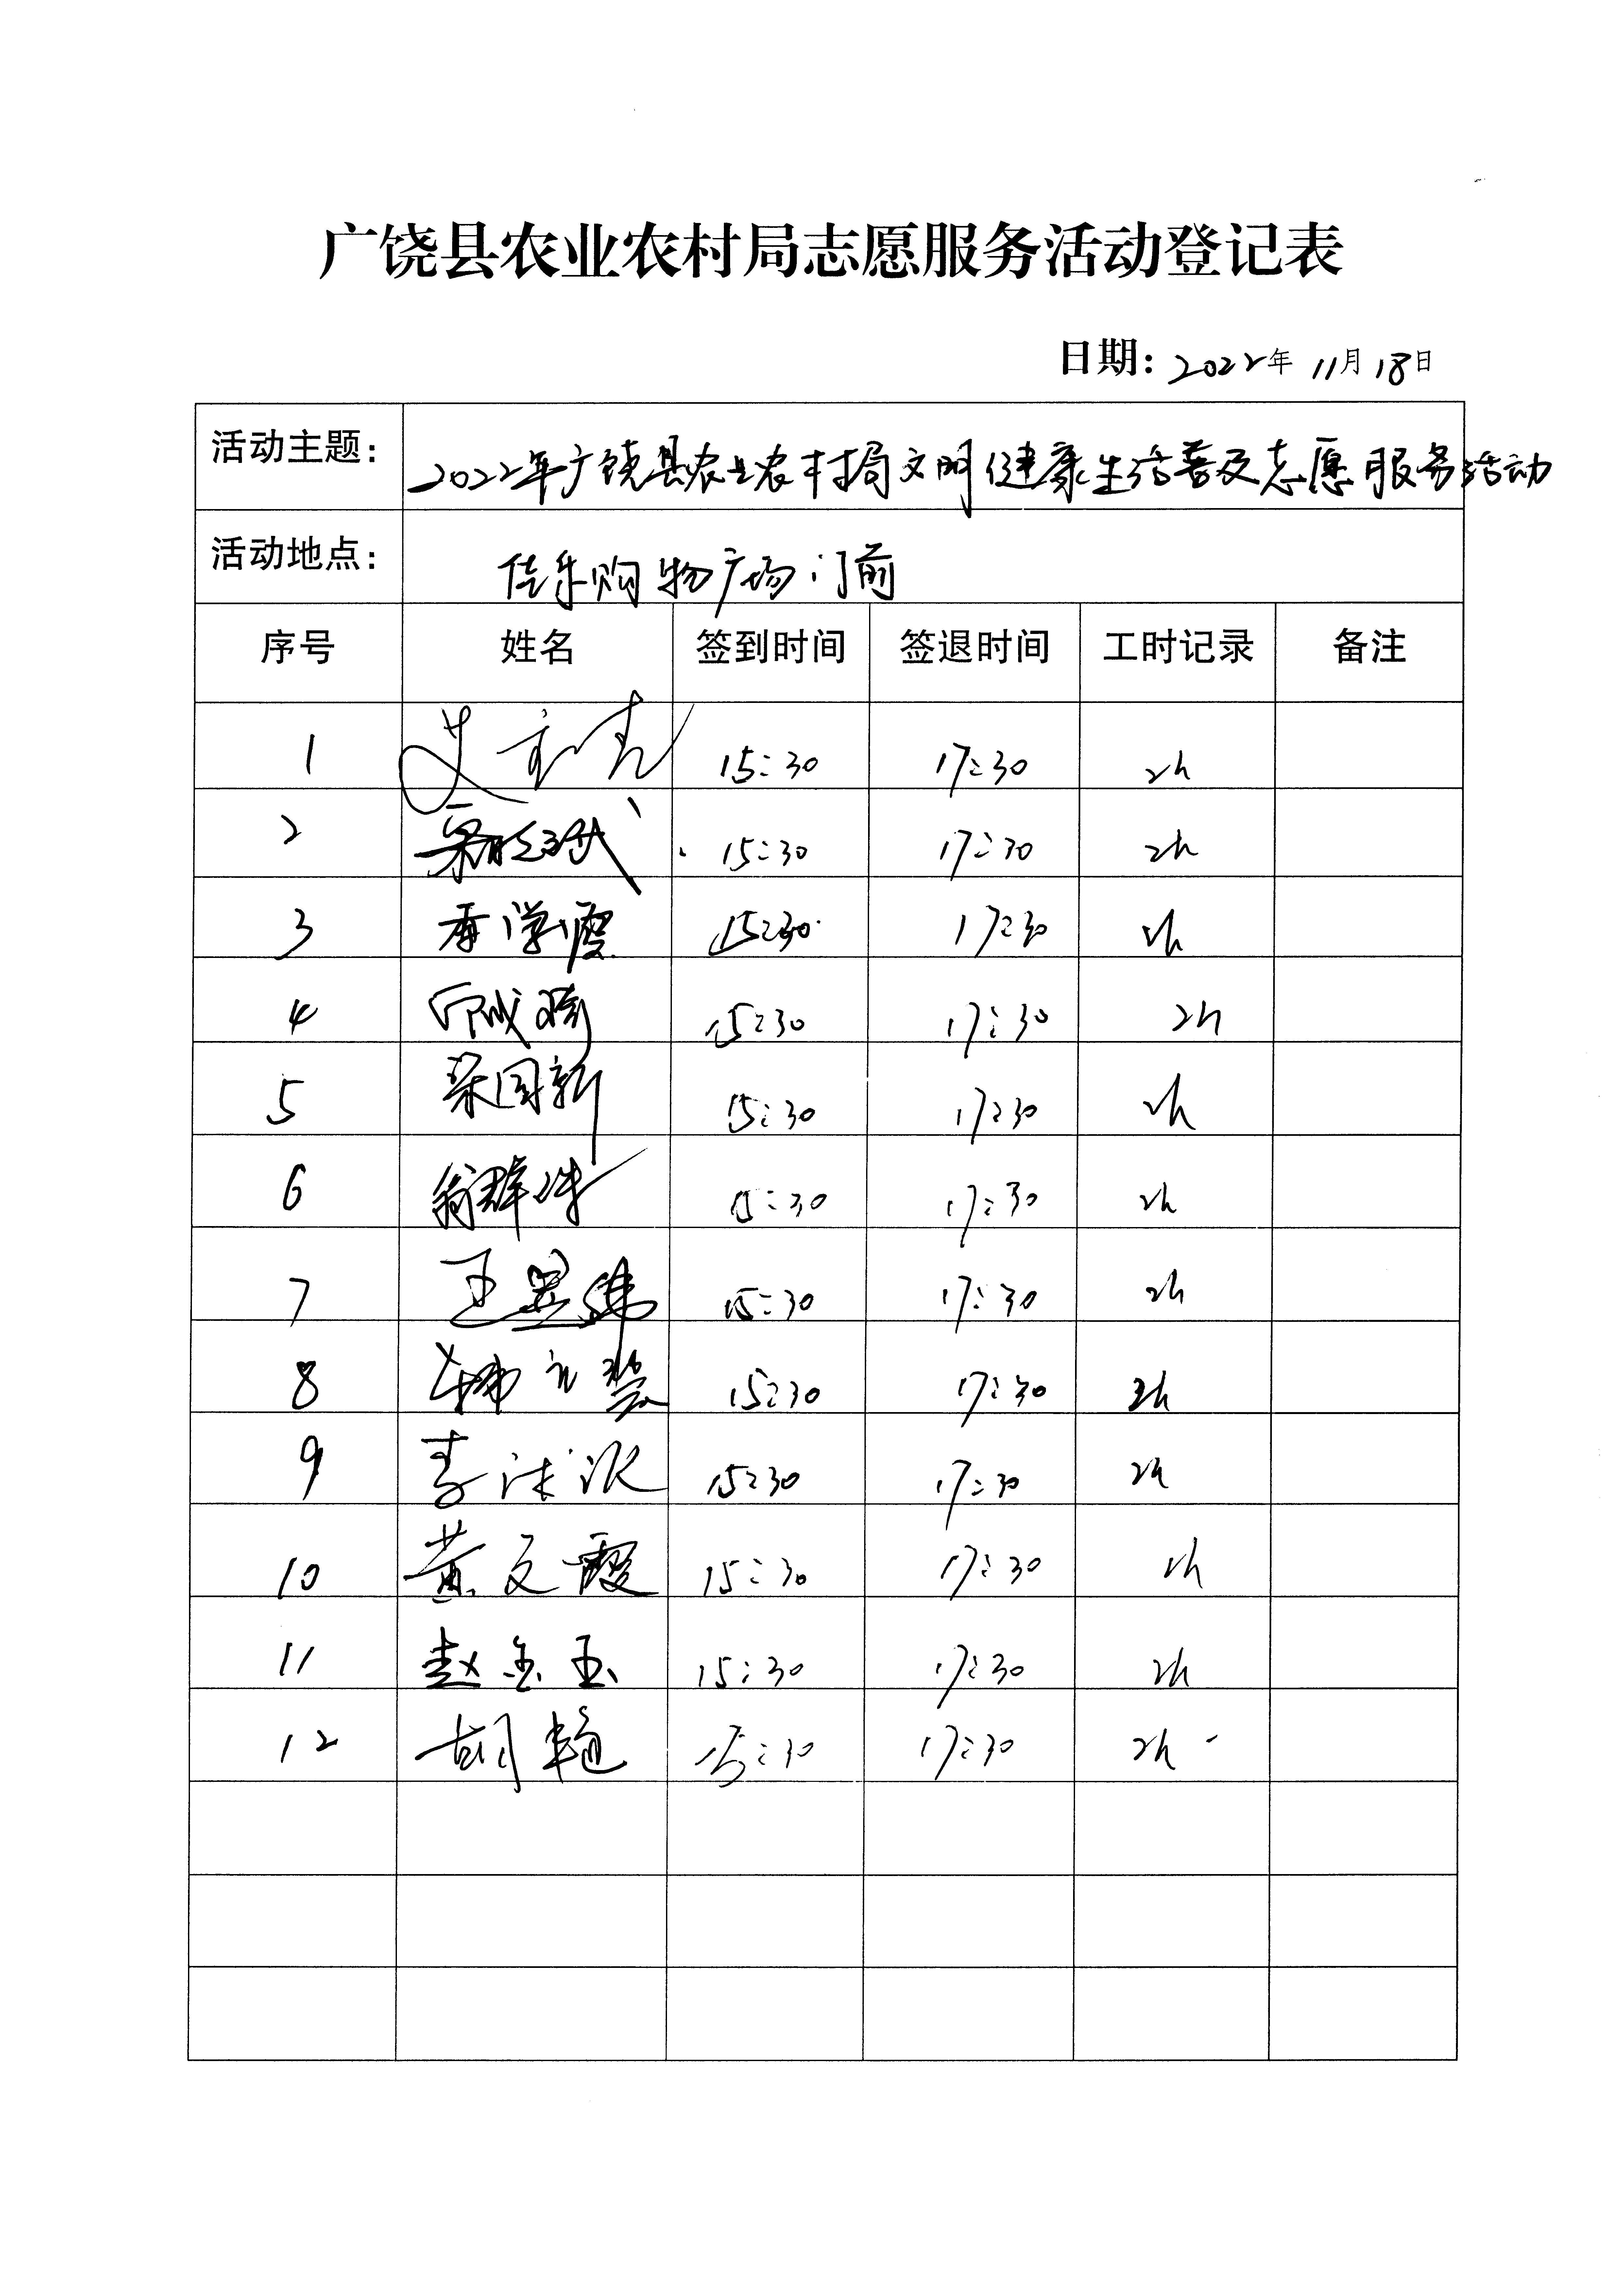 广饶县农业农村局志愿服务活动登记表
日期: 2022年 11月 18日
活动主题: 2022年广饶县农业农村局文明健康生活普及志愿服务活动
活动地点: 佳乐购物广场门前
序号 姓名 签到时间 签退时间 工时记录 备注
1 15:30 17:30 2h
2 15:30 17:30 2h
3 15:30 17:30 2h
4 15:30 17:30 2h
5 梁国新 15:30 17:30 2h
6 15:30 17:30 2h
7 王 15:30 17:30 2h
8 15:30 17:30 2h
9 李 15:30 17:30 2h
10 黄文霞 15:30 17:30 2h
11 赵金玉 15:30 17:30 2h
12 胡艳 15:30 17:30 2h